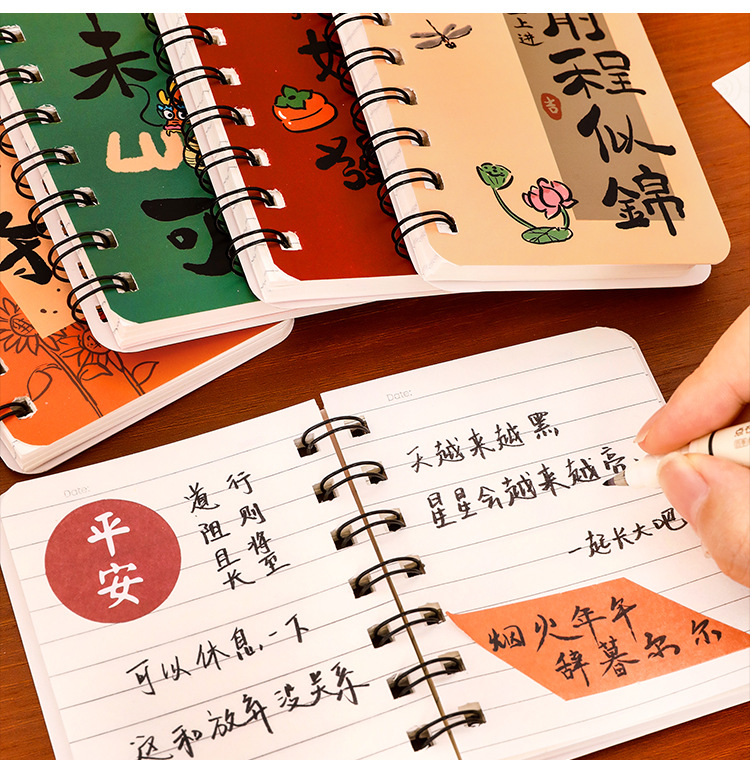 未
可
上进
前程似錦
吉
Date:
平安
道阻且长
行则将至
可以休息一下
这和放弃没关系
Date:
天越来越黑
星星会越来越亮
一起长大吧
烟火年年
辞暮尔尔